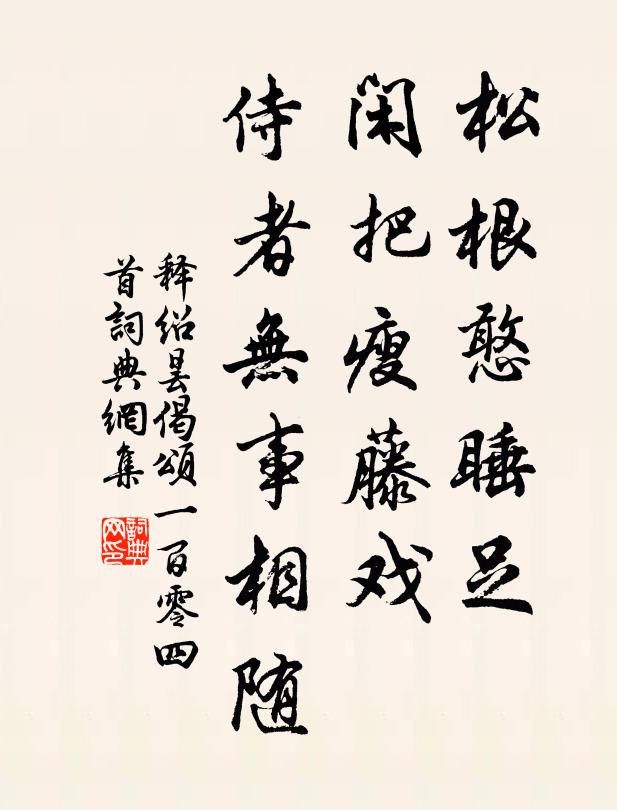 松根憨睡足
闲把瘦藤戏
侍者無事相随
释绍昙偈頌一百零四
首詞典網集
詞典
网印